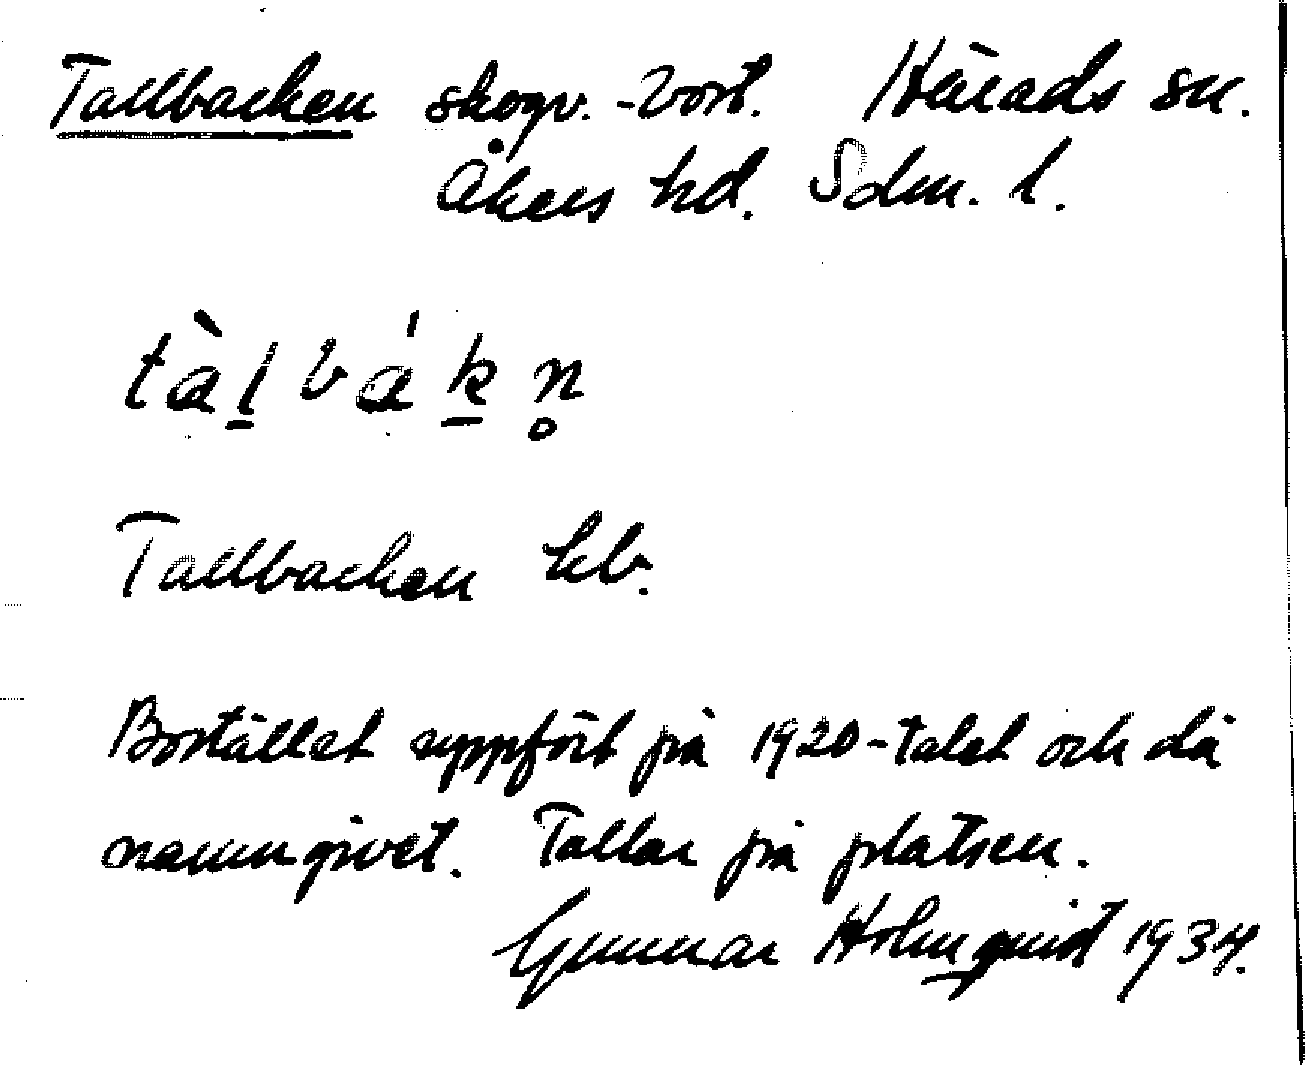 Tallbacken skogv.-bost. Härads sn.
Åkers hd. Sdm. l.
tàl̠bák̠n̥
Tallbacken kb.
Bostället uppfört på 1920-talet och då
namngivet. Tallar på platsen.
Gunnar Holmquist 1934.